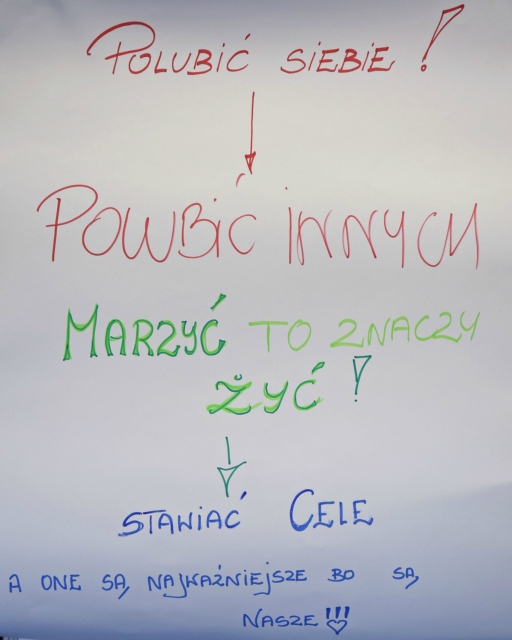 POLUBIĆ SIEBIE!
POLUBIĆ INNYCH
MARZYĆ TO ZNACZY
ŻYĆ!
STAWIAĆ CELE
A ONE SĄ NAJWAŻNIEJSZE BO SĄ
NASZE!!!